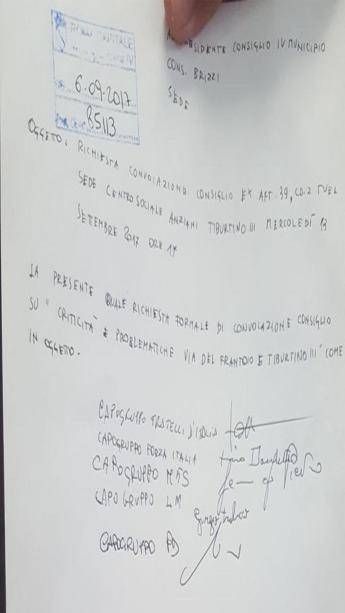 6.09.2017
85113
PRESIDENTE CONSIGLIO IV MUNICIPIO
CONS. BRIZZI
SEDE
OGGETTO: RICHIESTA CONVOCAZIONE CONSIGLIO EX ART. 39, CO. 2 TUEL
SEDE CENTRO SOCIALE ANZIANI TIBURTINO III MERCOLEDÌ 13
SETTEMBRE 2017 ORE 17
LA PRESENTE QUALE RICHIESTA FORMALE DI CONVOCAZIONE CONSIGLIO
SU "CRITICITÀ E PROBLEMATICHE VIA DEL FRANTOIO E TIBURTINO III" COME
IN OGGETTO.
CAPOGRUPPO FRATELLI D'ITALIA
CAPOGRUPPO FORZA ITALIA
CAPOGRUPPO M5S
CAPOGRUPPO LM
CAPOGRUPPO PD